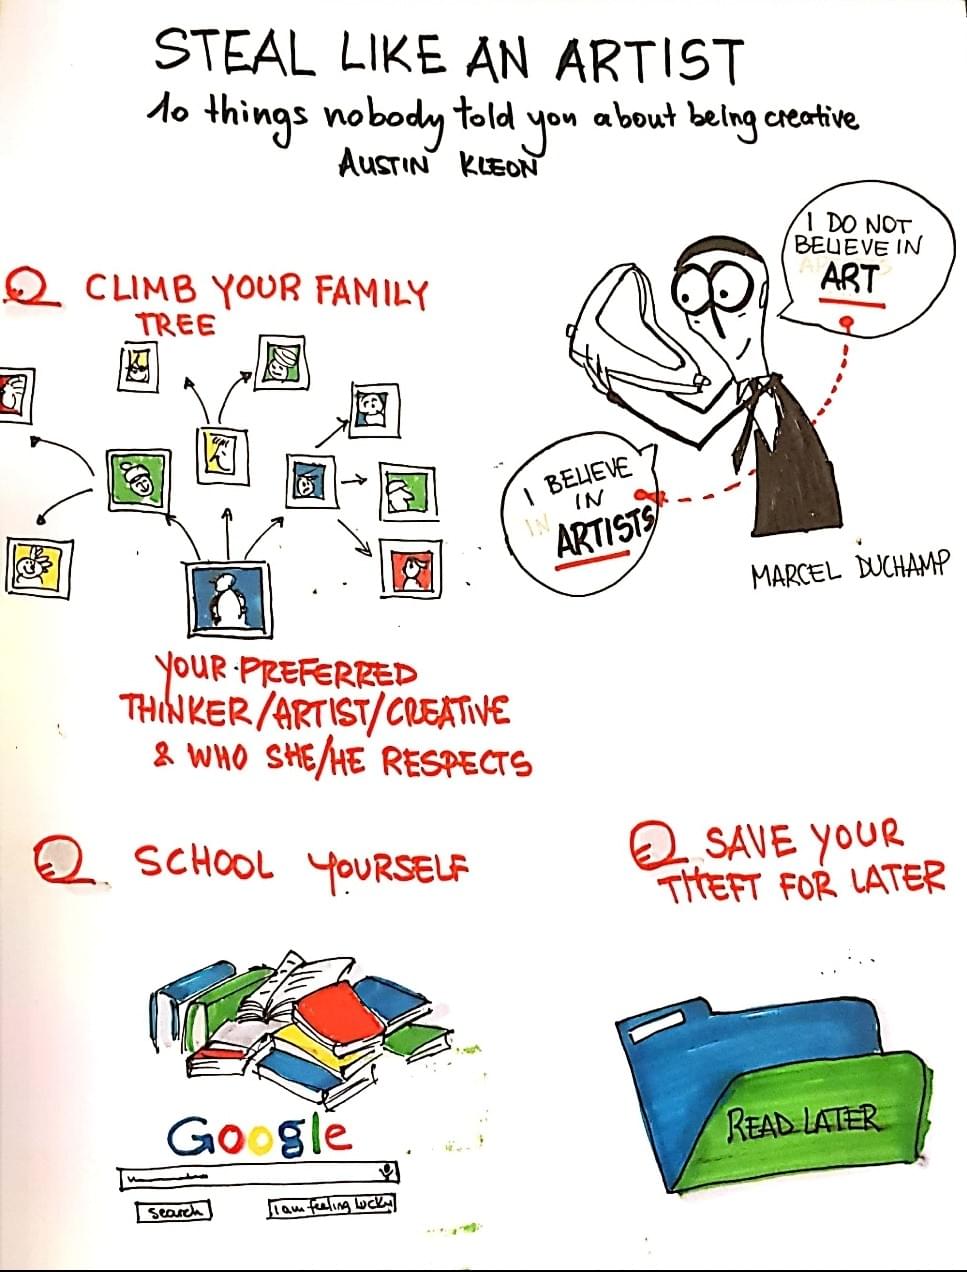 STEAL LIKE AN ARTIST
10 things nobody told you about being creative
AUSTIN KLEON
CLIMB YOUR FAMILY
TREE
I DO NOT
BELIEVE IN
ART
I BELIEVE
IN
ARTISTS
MARCEL DUCHAMP
YOUR PREFERRED
THINKER/ARTIST/CREATIVE
& WHO SHE/HE RESPECTS
SCHOOL YOURSELF
Google
search
I am feeling lucky
SAVE YOUR
THEFT FOR LATER
READ LATER